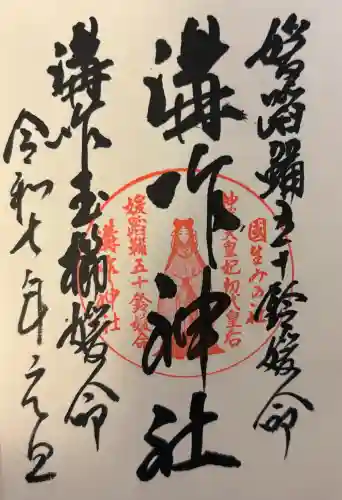 媛蹈鞴五十鈴媛命
溝咋神社
溝咋玉櫛媛命
令和七年元旦
國生みの社
皇妃初代皇后
媛蹈鞴五十鈴媛命
溝咋神社